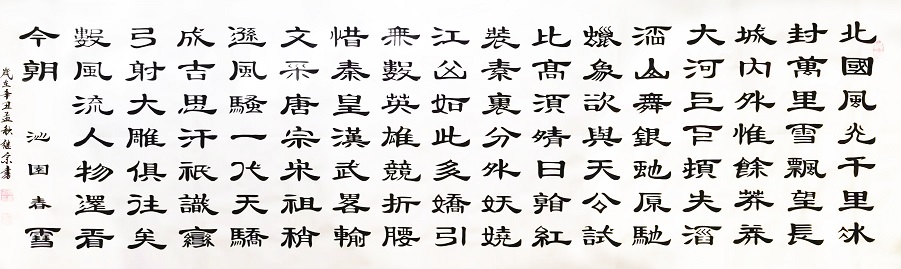 北國風光千里冰
封萬里雪飄望長
城內外惟餘莽莽
大河上下頓失滔
滔山舞銀蛇原馳
蠟象欲與天公試
比髙須晴日看紅
裝素裹分外妖嬈
江山如此多嬌引
無數英雄競折腰
惜秦皇漢武畧輸
文采唐宗宋祖稍
遜風騷一代天驕
成吉思汗祇識彎
弓射大雕俱往矣
數風流人物還看
今朝 沁園春 雪
辛丑孟秋 書